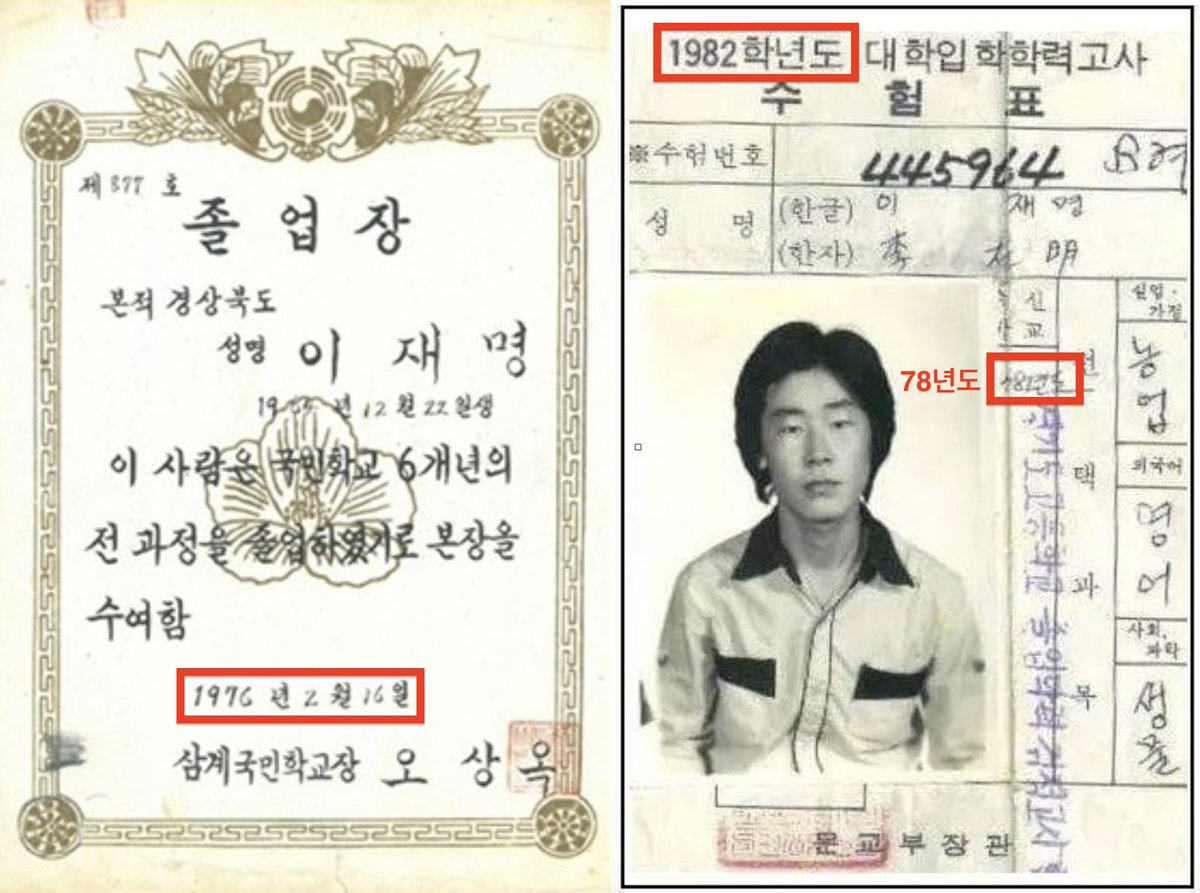 제 377 호
졸 업 장
본적 경상북도
성명 이 재 명
19 년 12 월 22 일생
이 사람은 국민학교 6 개년의
전 과정을 졸업하였기로 본장을
수여함
1976 년 2 월 16 일
삼계국민학교장 오 상 옥
1982학년도 대학입학학력고사
수 험 표
※수험번호
445964
성 명
(한글) 이 재 명
(한자) 李 在 明
78년도
선 택 과 목
실업·
가정
농업
외국어
영어
사회,
과학
생물
문교부장관